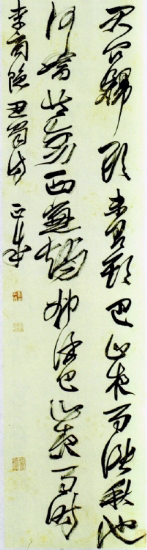 君問歸期未有期巴山夜雨漲秋池
何當共剪西窗燭却話巴山夜雨時
李商隱詩